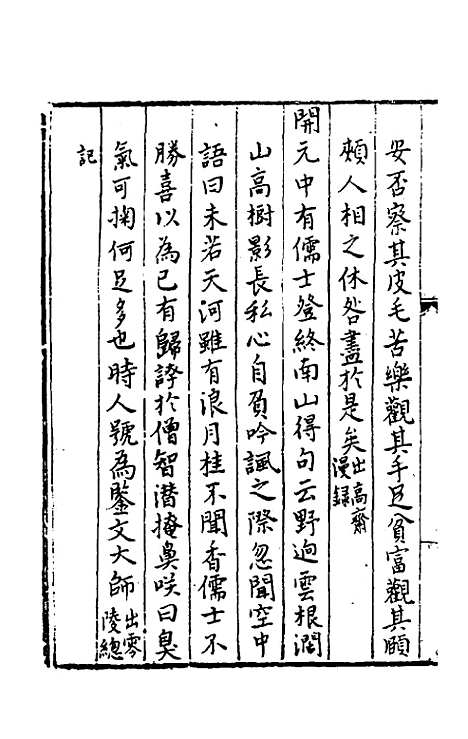 安否察其皮毛苦樂觀其手足貧富觀其頤
頰人相之休咎盡於是矣出高齋漫録
開元中有儒士登終南山得句云野迥雲根濶
山高樹影長私心自負吟諷之際忽聞空中
語曰未若天河雖有浪月桂不聞香儒士不
勝喜以為已有歸誇於僧智潛掩鼻咲曰臭
氣可掬何足多也時人號為鑒文大師出零陵總
記